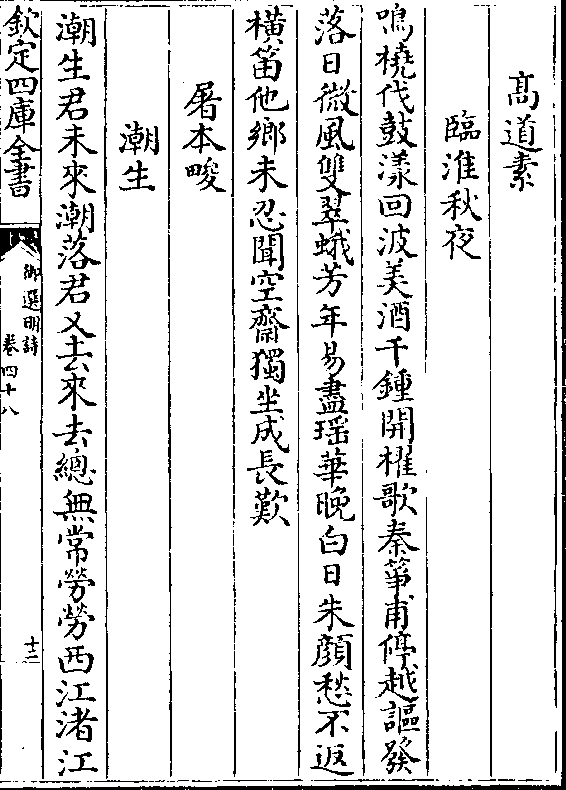 高道素
臨淮秋夜
鳴橈伐鼓漾回波美酒千鍾開櫂歌秦箏甫停越謳發
落日微風雙翠蛾芳年易盡瑶華晚白日朱顔愁不返
横笛他鄉未忍聞空齋獨坐成長歎
屠本畯
潮生
潮生君未來潮落君又去來去總無常勞勞西江渚江
欽定四庫全書
御選明詩
卷四十八
十三